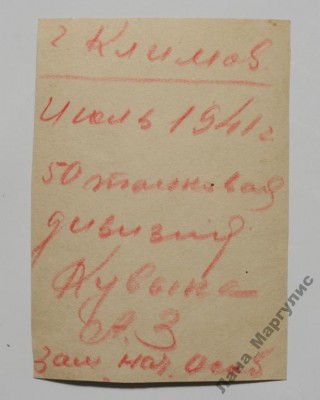 г Климов
Июль 1941 г
50 танковая
дивизия
Кувыка
А. З
Зам нач. Особ
Лана Маргулис